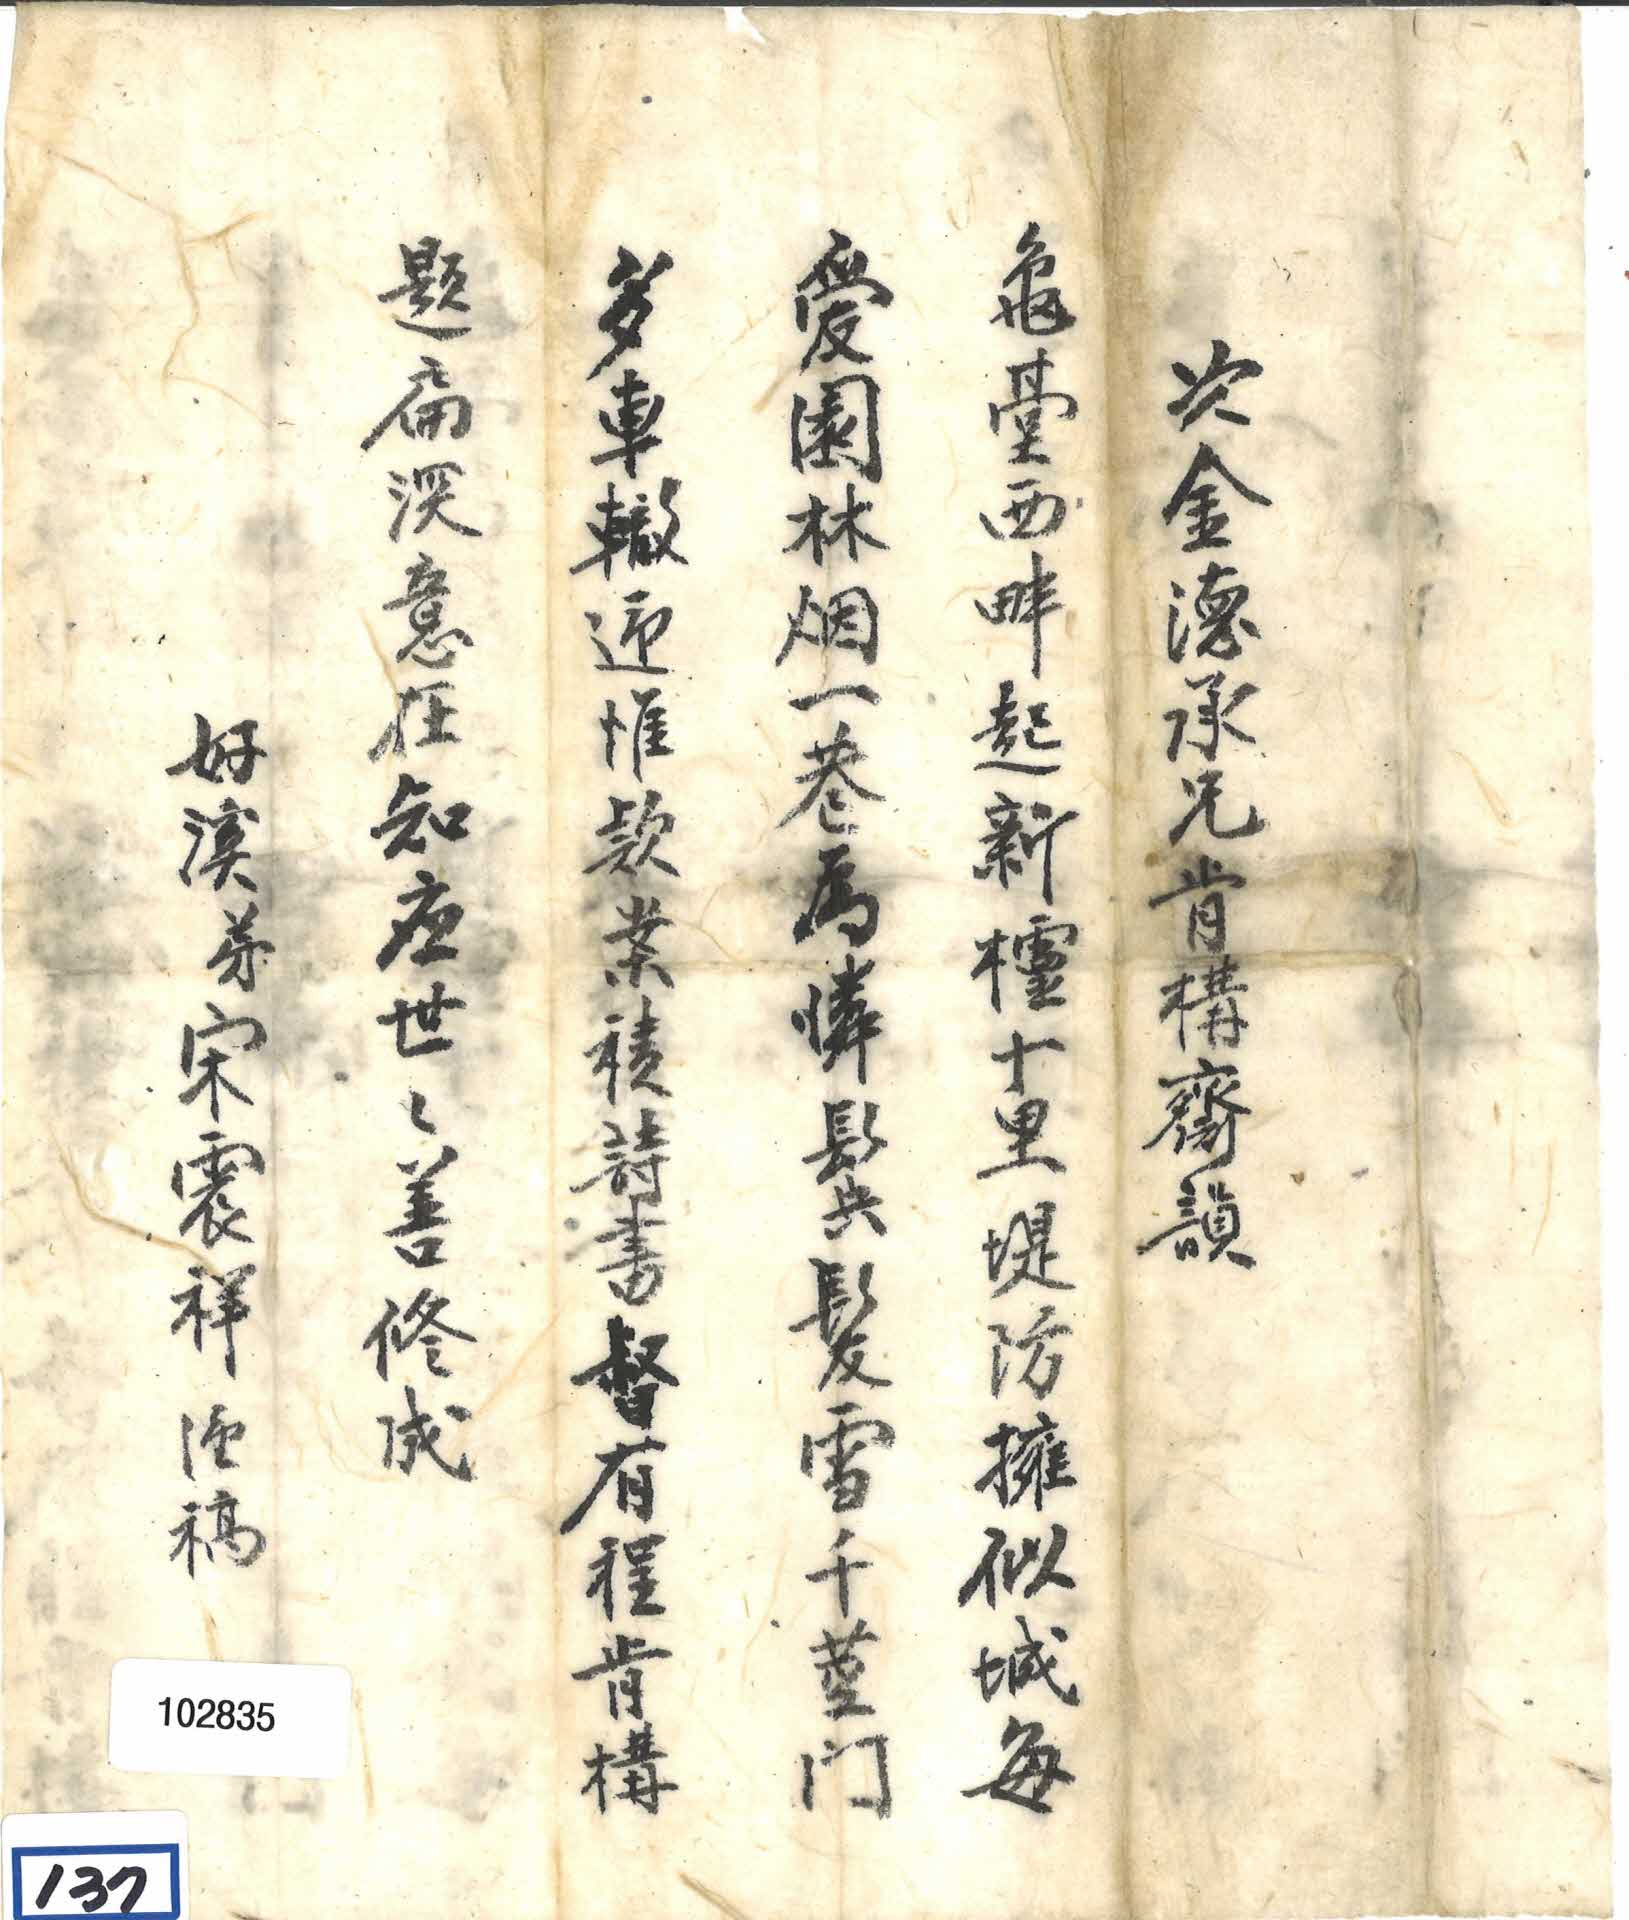 次金德承兄肯構齋韻
龜臺西畔起新櫺十里堤防擁似城每
愛園林烟一巷爲憐鬢髮雪千莖门
多車轍迎惟款業積詩書督有程肯構
題扁深意在知應世〻善修成
好溪弟宋震祥謹稿
102835
137